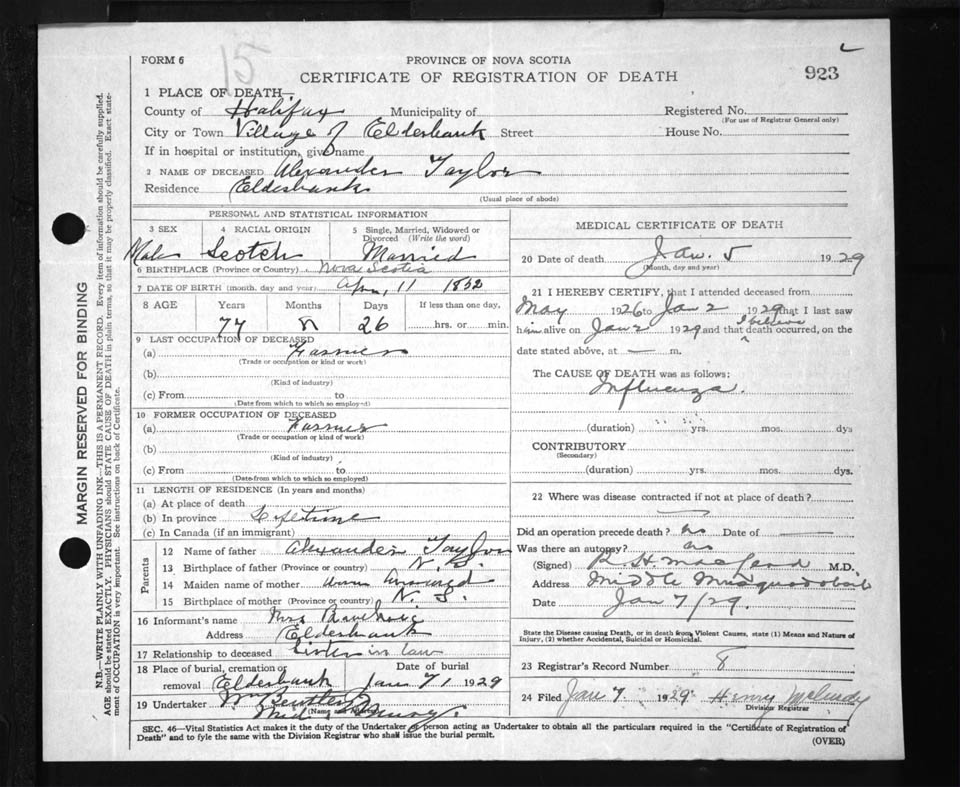 15
FORM 6
PROVINCE OF NOVA SCOTIA
CERTIFICATE OF REGISTRATION OF DEATH
923
1 PLACE OF DEATH—
County of Halifax Municipality of
City or Town Village of Elderbank Street
If in hospital or institution, give name
2 NAME OF DECEASED Alexander Taylor
Residence Elderbank
(Usual place of abode)
Registered No.
(For use of Registrar General only)
House No.
MARGIN RESERVED FOR BINDING
N.B.—WRITE PLAINLY WITH UNFADING INK—THIS IS A PERMANENT RECORD. Every item of information should be carefully supplied.
AGE should be stated EXACTLY. PHYSICIANS should STATE CAUSE OF DEATH in plain terms, so that it may be properly classified. Exact state-
ment of OCCUPATION is very important. See instructions on back of Certificate.
PERSONAL AND STATISTICAL INFORMATION
3 SEX 4 RACIAL ORIGIN 5 Single, Married, Widowed or
Divorced (Write the word)
Male Scotch Married
6 BIRTHPLACE (Province or Country) Nova Scotia
7 DATE OF BIRTH (month, day and year) 11 1852
8 AGE Years Months Days If less than one day,
77 8 26 hrs. or min.
9 LAST OCCUPATION OF DECEASED
(a) Farmer
(Trade or occupation or kind or work)
(b)
(Kind of industry)
(c) From to
(Date from which to which so employed)
10 FORMER OCCUPATION OF DECEASED
(a) Farmer
(Trade or occupation or kind of work)
(b)
(Kind of industry)
(c) From to
(Date from which to which so employed)
11 LENGTH OF RESIDENCE (In years and months)
(a) At place of death
(b) In province Lifetime
(c) In Canada (if an immigrant)
Parents
12 Name of father Alexander Taylor
13 Birthplace of father (Province or country) N.
14 Maiden name of mother
15 Birthplace of mother (Province or country) N. S.
16 Informant's name Mrs
Address Elderbank
17 Relationship to deceased Sister in law
18 Place of burial, cremation or removal Elderbank
Date of burial Jan 7 1929
19 Undertaker
(Name and
MEDICAL CERTIFICATE OF DEATH
20 Date of death Jan. 5 1929
(Month, day and year)
21 I HEREBY CERTIFY, that I attended deceased from
May 1926 to Jan 2 1929 that I last saw
him alive on Jan 2 1929 and that I believe death occurred, on the
date stated above, at — m.
The CAUSE OF DEATH was as follows:
Influenza.
(duration) yrs. mos. dys
CONTRIBUTORY
(Secondary)
(duration) yrs. mos. dys.
22 Where was disease contracted if not at place of death?
Did an operation precede death? no Date of
Was there an autopsy? no
(Signed) R. H. MacLeod M.D.
Address Middle Musquodoboit
Date Jan 7/29.
State the Disease causing Death, or in death from Violent Causes, state (1) Means and Nature of
Injury, (2) whether Accidental, Suicidal or Homicidal.
23 Registrar's Record Number 8
24 Filed Jan 7. 1929 Henry
Division Registrar
SEC. 46—Vital Statistics Act makes it the duty of the Undertaker or person acting as Undertaker to obtain all the particulars required in the "Certificate of Registration of
Death" and to fyle the same with the Division Registrar who shall issue the burial permit.
(OVER)